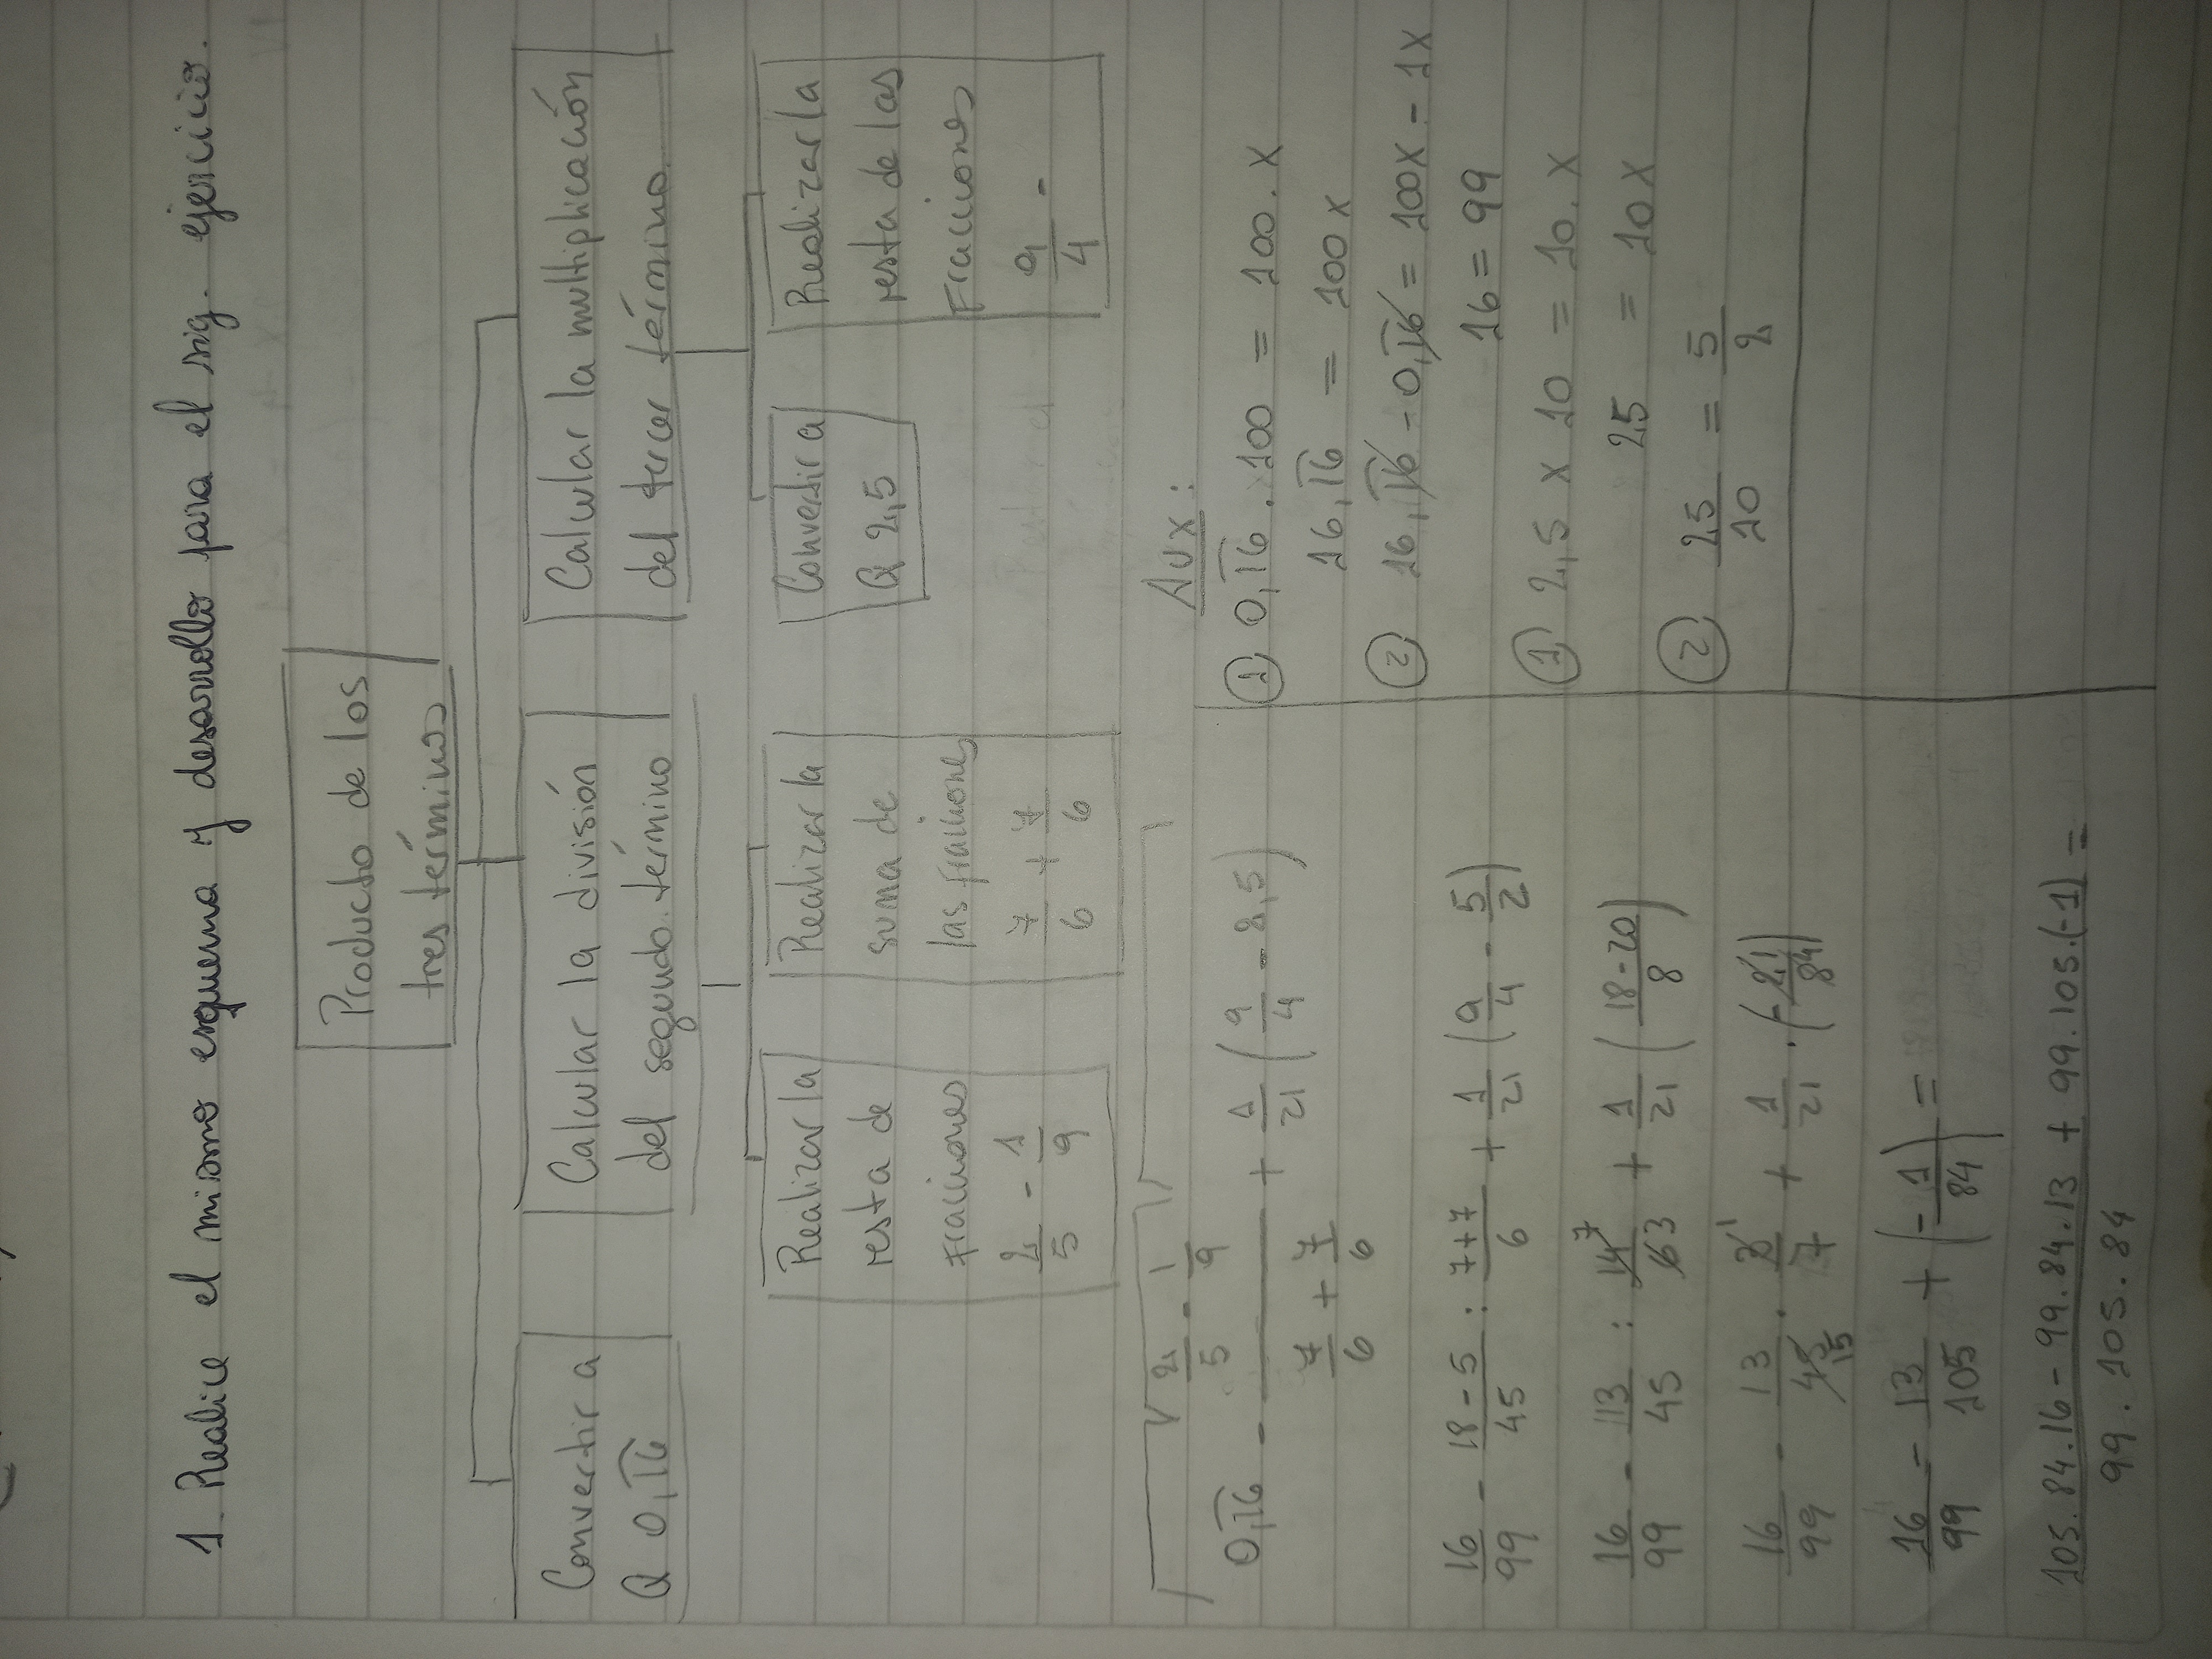 1. Realice el mismo esquema y desarrollo para el sig. ejercicio.
Producto de los
tres términos
Convertir a
Q 0,1͡6
Calcular la división
del segundo término
Calcular la multiplicación
del tercer término
Realizar la
resta de
Fracciones
2/5 - 1/9
Realizar la
suma de
las fracciones
7/6 + 7/6
Convertir a
Q 2,5
Realizar la
resta de las
Fracciones
9/4 -
0,1͡6 - (2/5 - 1/9)/(7/6 + 7/6) + 1/21 (9/4 - 2,5)
16/99 - (18 - 5)/45 : (7+7)/6 + 1/21 (9/4 - 5/2)
16/99 - 13/45 : 14/6 7 3 + 1/21 ((18-20)/8)
16/99 - 13/45 15 . 3/7 1 + 1/21 . (-21/84)
16/99 - 13/105 + (-1/84) =
(105.84.16 - 99.84.13 + 99.105.(-1))/(99.105.84) =
Aux:
① 0,1͡6 . 100 = 100. x
16,1͡6 = 100x
② 16,1͡6 - 0,1͡6 = 100x - 1x
16 = 99
① 2,5 x 10 = 10. x
25 = 10x
② 25/10 = 5/2